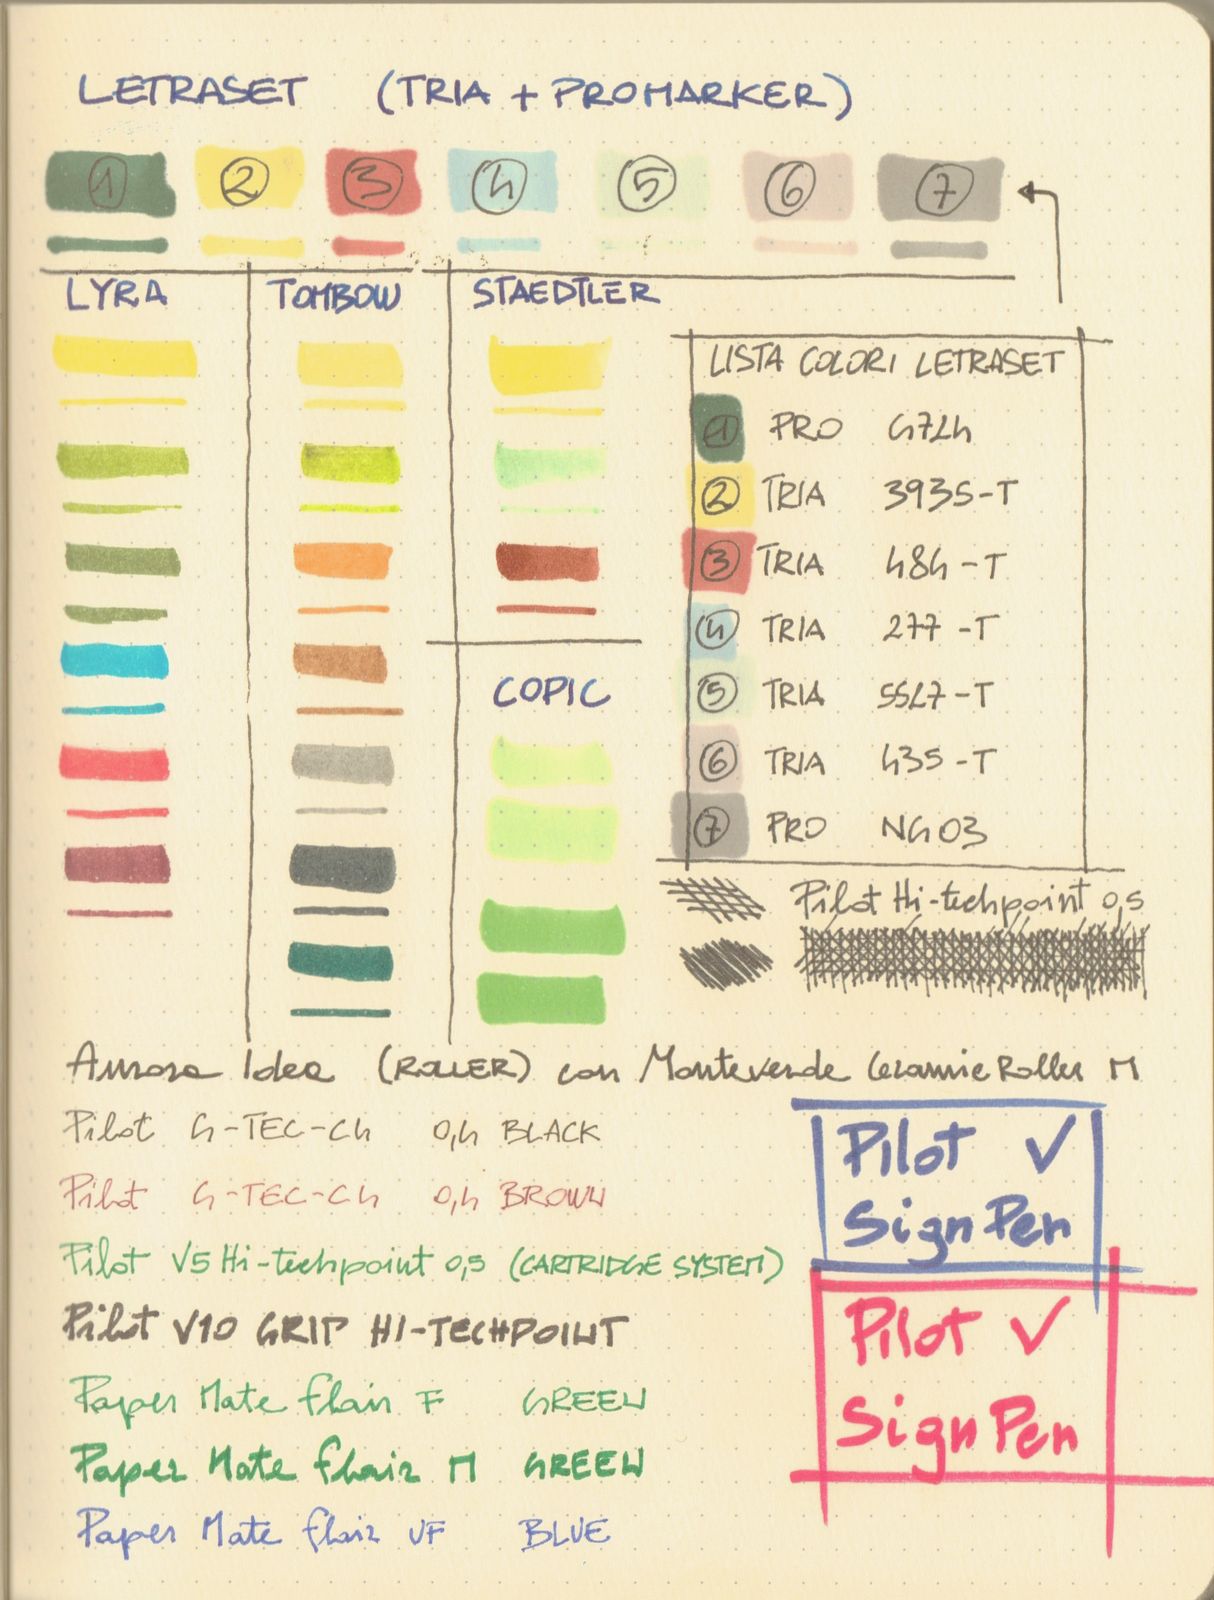 LETRASET (TRIA + PROMARKER)
1 2 3 4 5 6 7
LYRA
TOMBOW
STAEDTLER
COPIC
LISTA COLORI LETRASET
1 PRO G724
2 TRIA 3935-T
3 TRIA 484-T
4 TRIA 277-T
5 TRIA 5527-T
6 TRIA 435-T
7 PRO NG03
Pilot Hi-techpoint 0,5
Aurora Idea (ROLLER) con Monteverde Ceramic Roller M
Pilot G-TEC-C4 0,4 BLACK
Pilot G-TEC-C4 0,4 BROWN
Pilot V5 Hi-techpoint 0,5 (CARTRIDGE SYSTEM)
Pilot V10 GRIP HI-TECHPOINT
Paper Mate flair F GREEN
Paper Mate flair M GREEN
Paper Mate flair UF BLUE
Pilot V
Sign Pen
Pilot V
Sign Pen